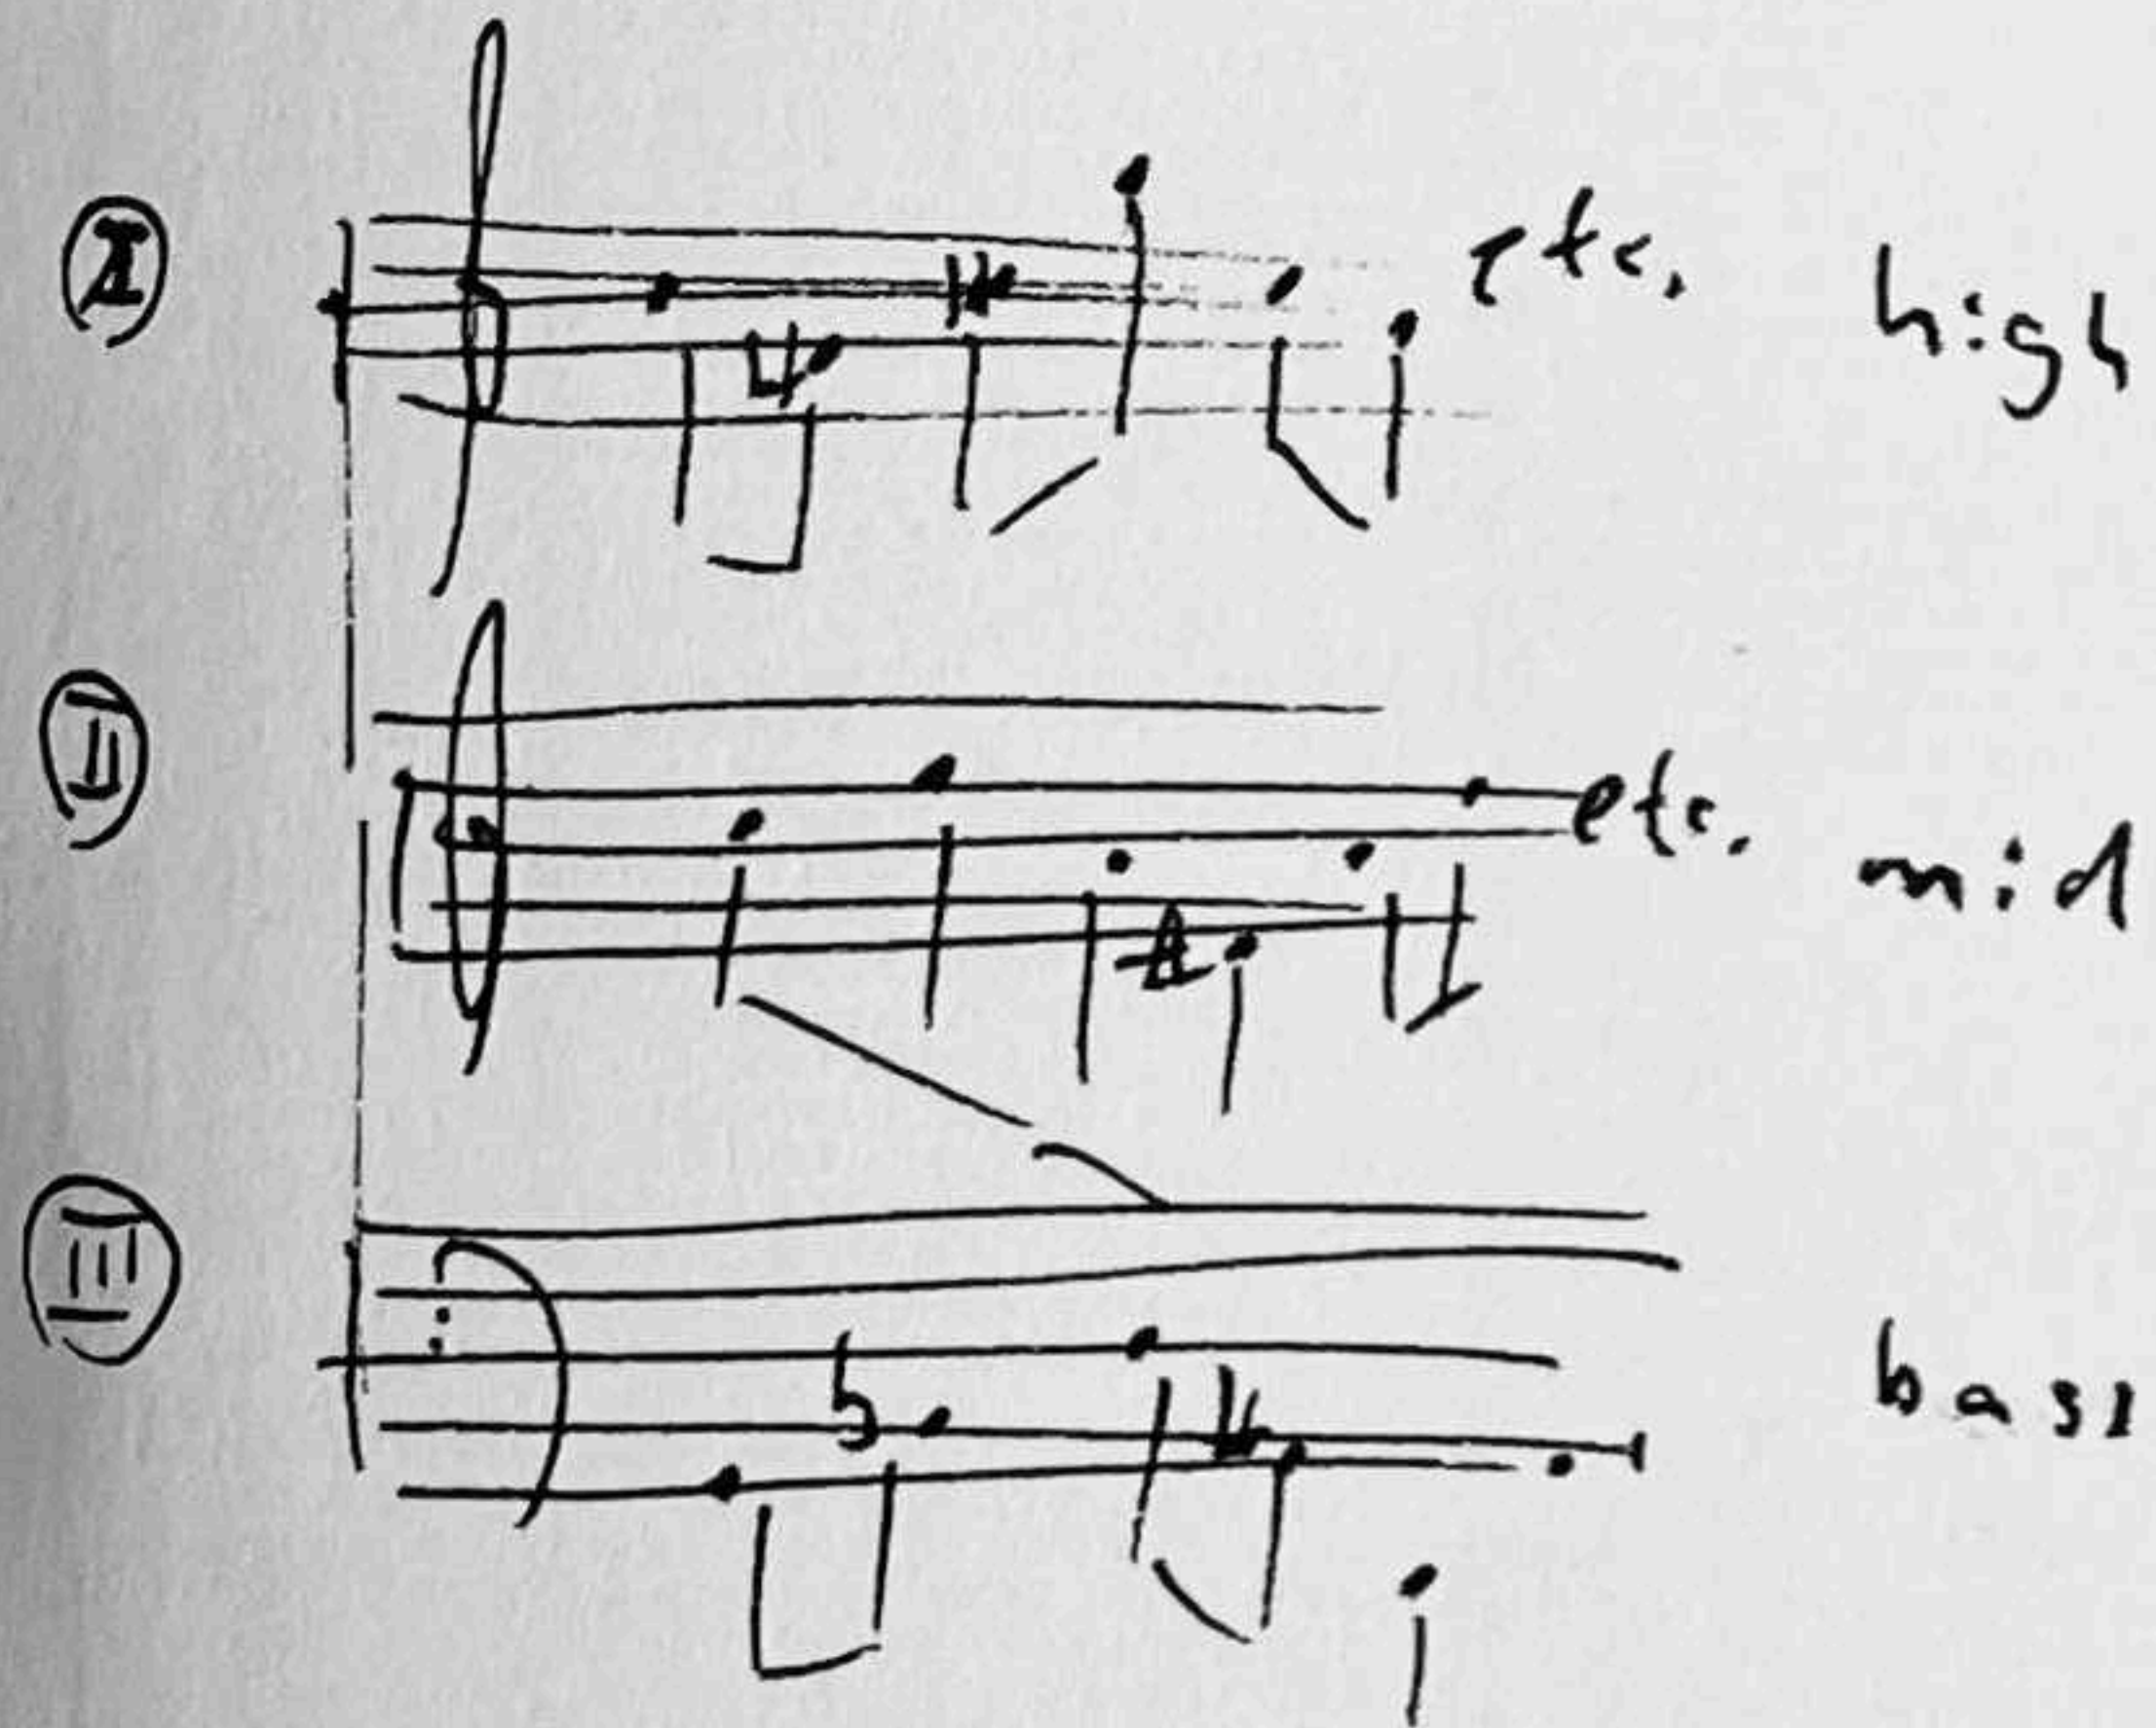 I etc. high
II etc. mid
III bass